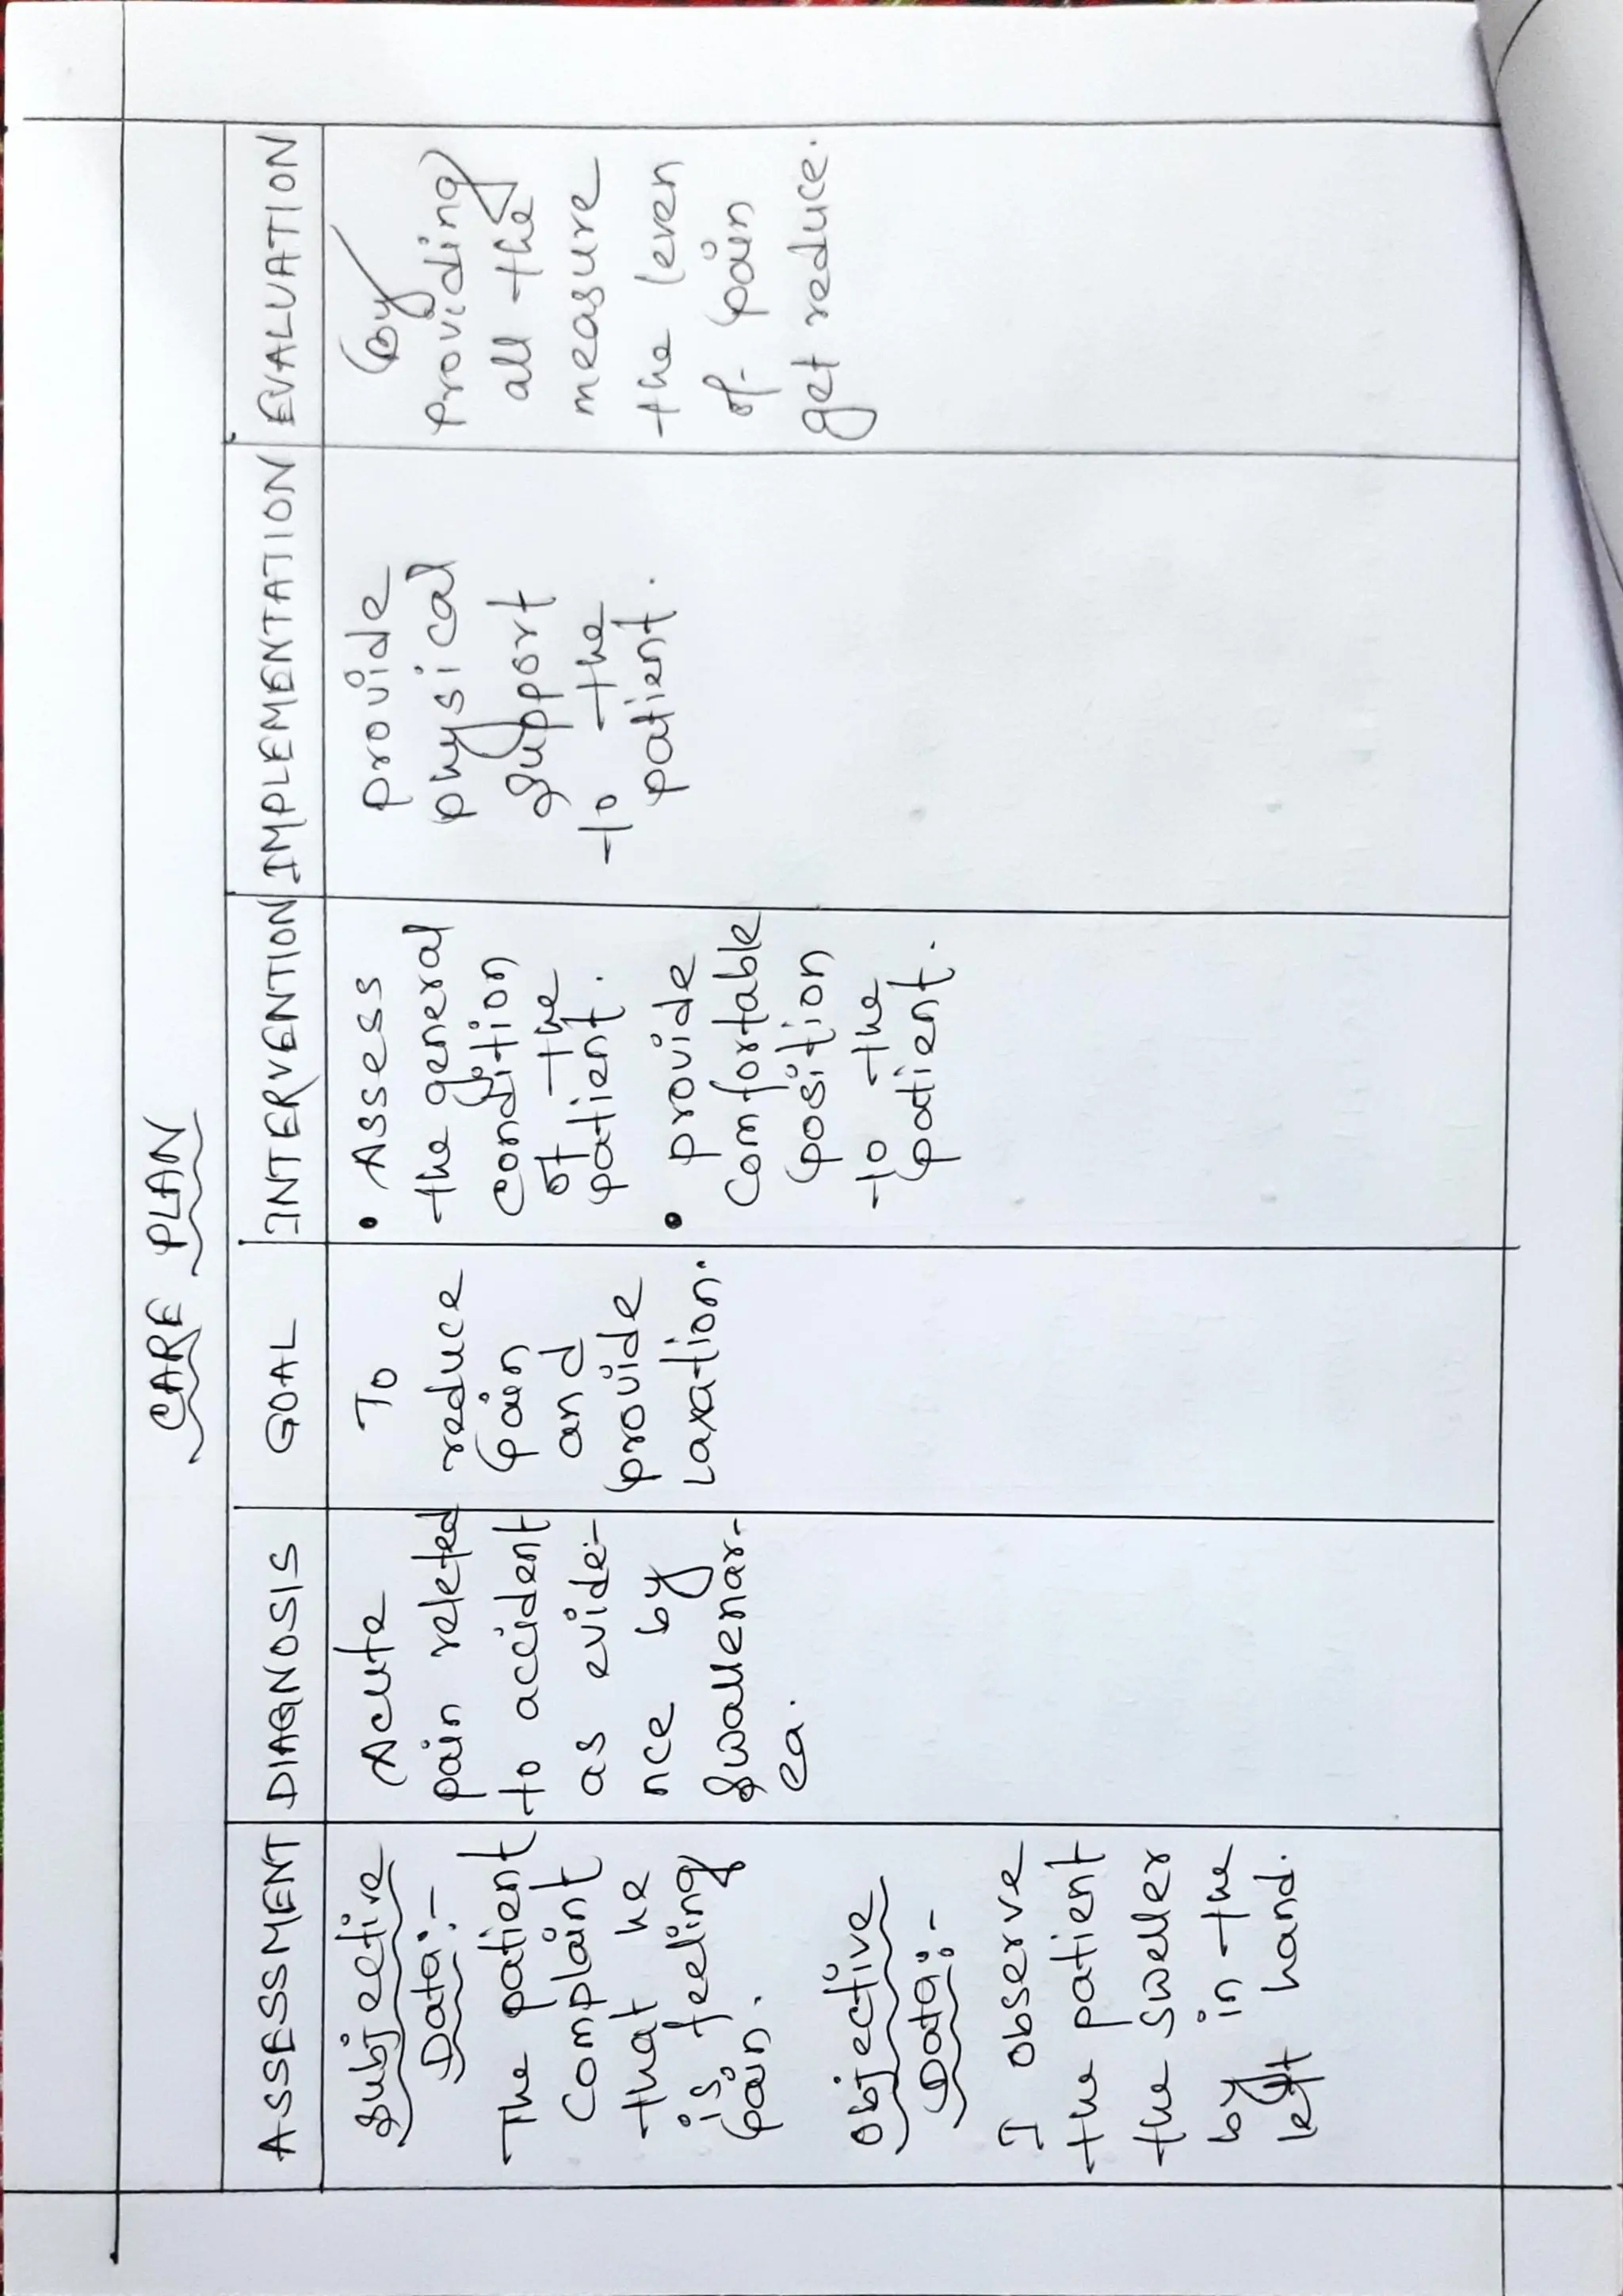 CARE PLAN
ASSESSMENT
DIAGNOSIS
GOAL
INTERVENTION
IMPLEMENTATION
EVALUATION
Subjective
Data:-
The patient
complaint
that he
is feeling
pain.
Objective
Data:-
I observe
the patient
the sweller
by in the
left hand.
Acute
pain releted
to accident
as evide-
nce by
swallenar-
ea.
To
reduce
pain
and
provide
Laxation.
• Assess
the general
condition
of the
patient.
• provide
comfortable
position
to the
patient.
provide
physical
support
to the
patient.
By
Providing
all the
measure
the leven
of pain
get reduce.